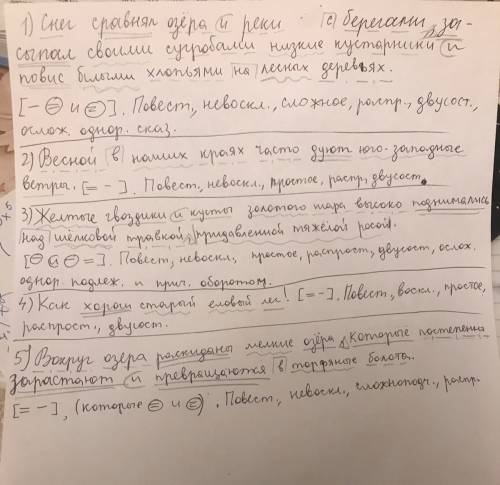 1) Снег сравнял озёра и реки с берегами, за-
сыпал своими сугробами низкие кустарники и
повис белыми хлопьями на лесных деревьях.
[– ⊖ и ⊜]. Повест., невоскл., сложное, распр., двусост.,
ослож. однор. сказ.
2) Весной в наших краях часто дуют юго-западные
ветры. [= –]. Повест., невоскл., простое, распр., двусост.
3) Желтые гвоздики и кусты золотого шара высоко поднимались
над шёлковой травкой, придавленной тяжёлой росой.
[⊖ и ⊖ =]. Повест., невоскл., простое, распрост., двусост., ослож.
однор. подлеж. и прич. оборотом.
4) Как хорош старый еловый лес! [= –]. Повест., воскл., простое,
распрост., двусост.
5) Вокруг озера раскиданы мелкие озёра, которые постепенно
зарастают и превращаются в торфяные болота.
[= –], (которые ⊜ и ⊜). Повест., невоскл., сложноподч., распр.